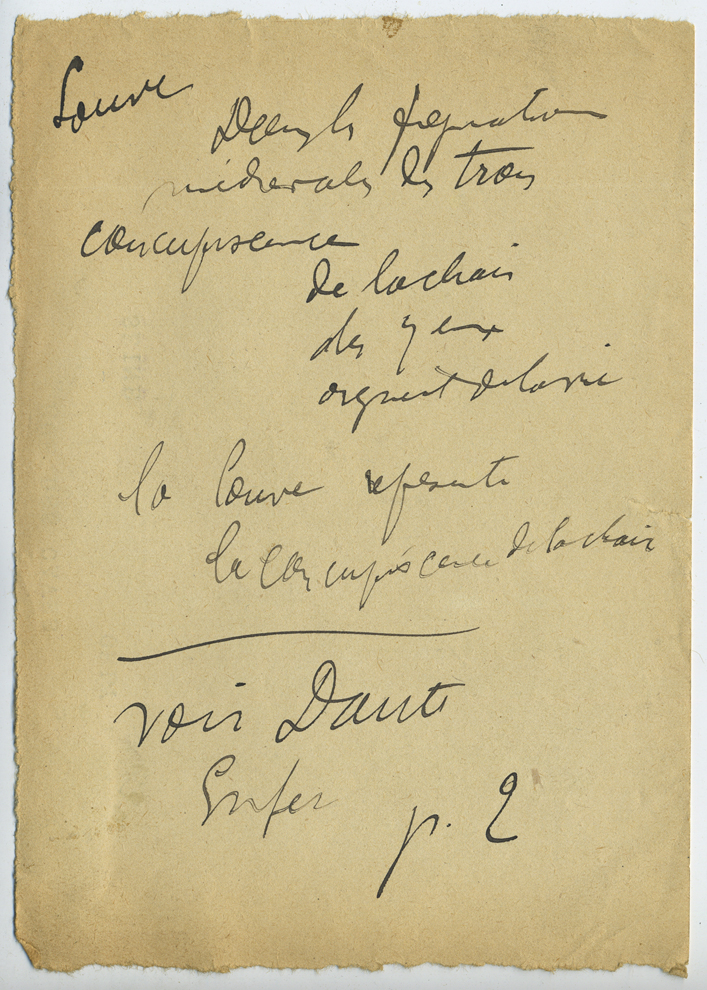 Louve
Dans les figurations
médievales des trois
concupiscence
de la chair
des yeux
orgueil de la vie
la louve represente
la concupiscence de la chair
voir Dante
Enfer
p. 2